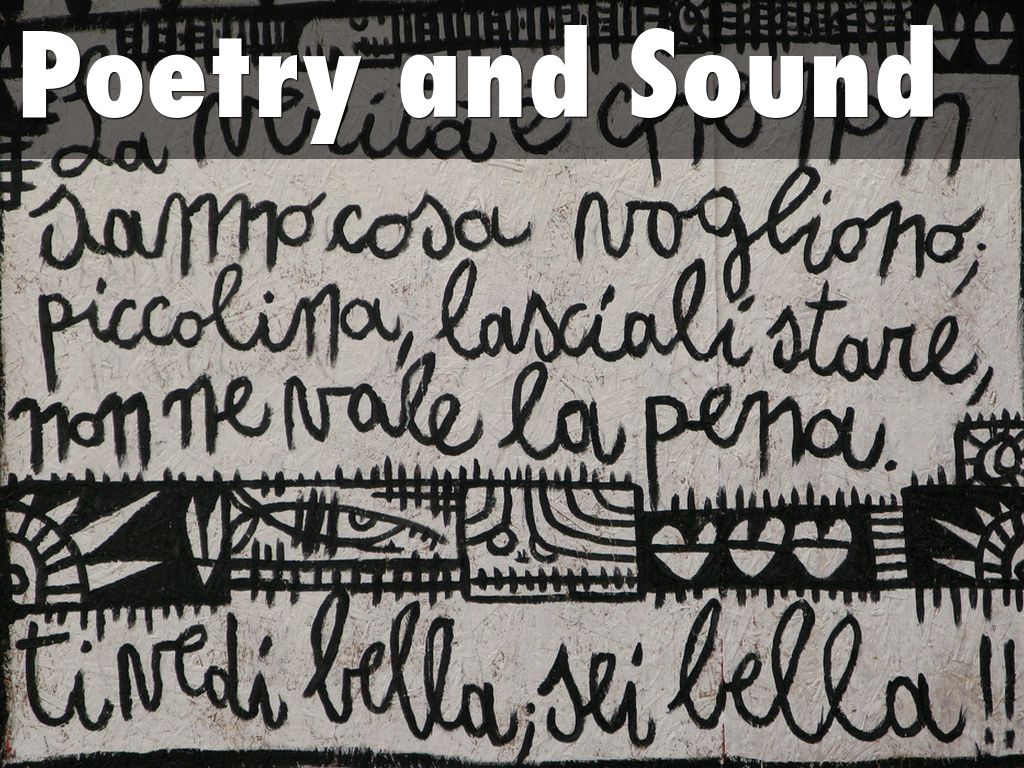 Poetry and Sound
La verità è
sanno cosa vogliono;
piccolina, lasciali stare,
non ne vale la pena.
ti vedi bella; sei bella!!